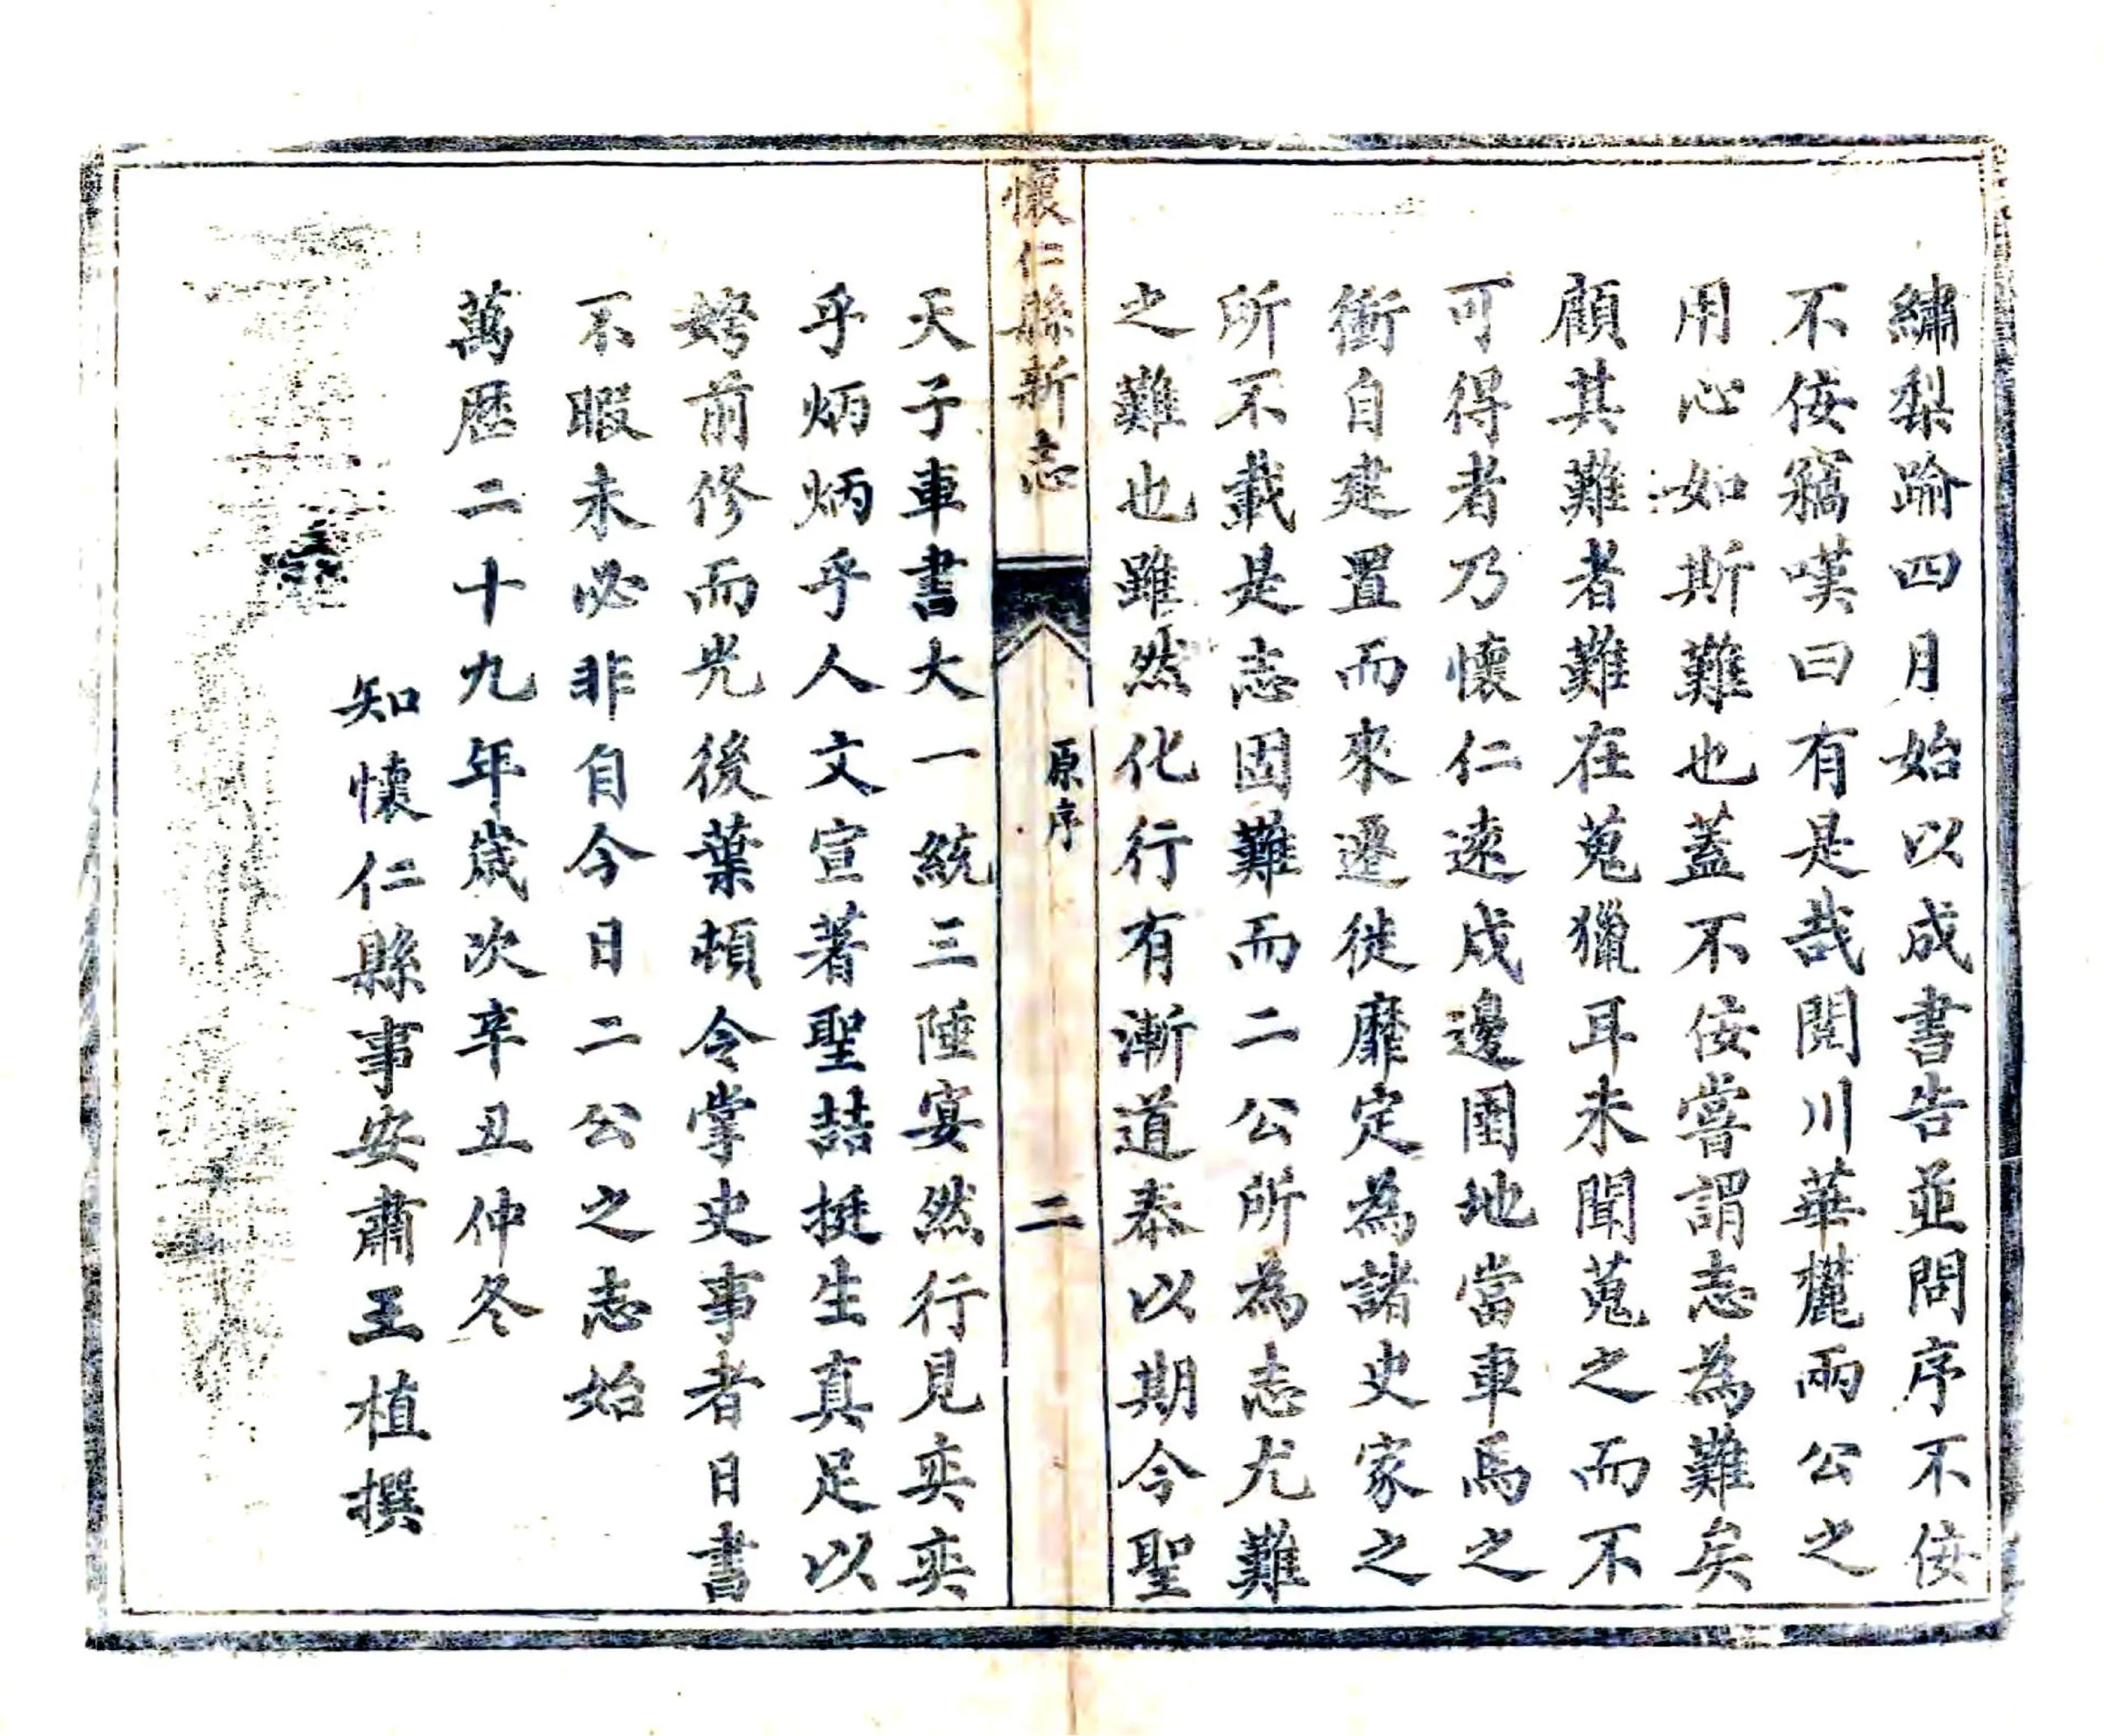 繡梨踰四月始以成書告並問序不佞
不佞竊嘆曰有是哉閱川華麓兩公之
用心如斯難也蓋不佞嘗謂志為難矣
顧其難者難在蒐獵耳未聞蒐之而不
可得者乃懷仁遠戍邊圉地當車馬之
衝自建置而來遷徙靡定為諸史家之
所不載是志固難而二公所為志尤難
之難也雖然化行有漸道泰以期今聖
懷仁縣新志
原序
二
天子車書大一統三陲宴然行見奕奕
乎炳炳乎人文宣著聖喆挺生真足以
姱前修而光後葉頓令掌史事者日書
不暇未必非自今日二公之志始
萬歷二十九年歲次辛丑仲冬
知懷仁縣事安肅王植撰